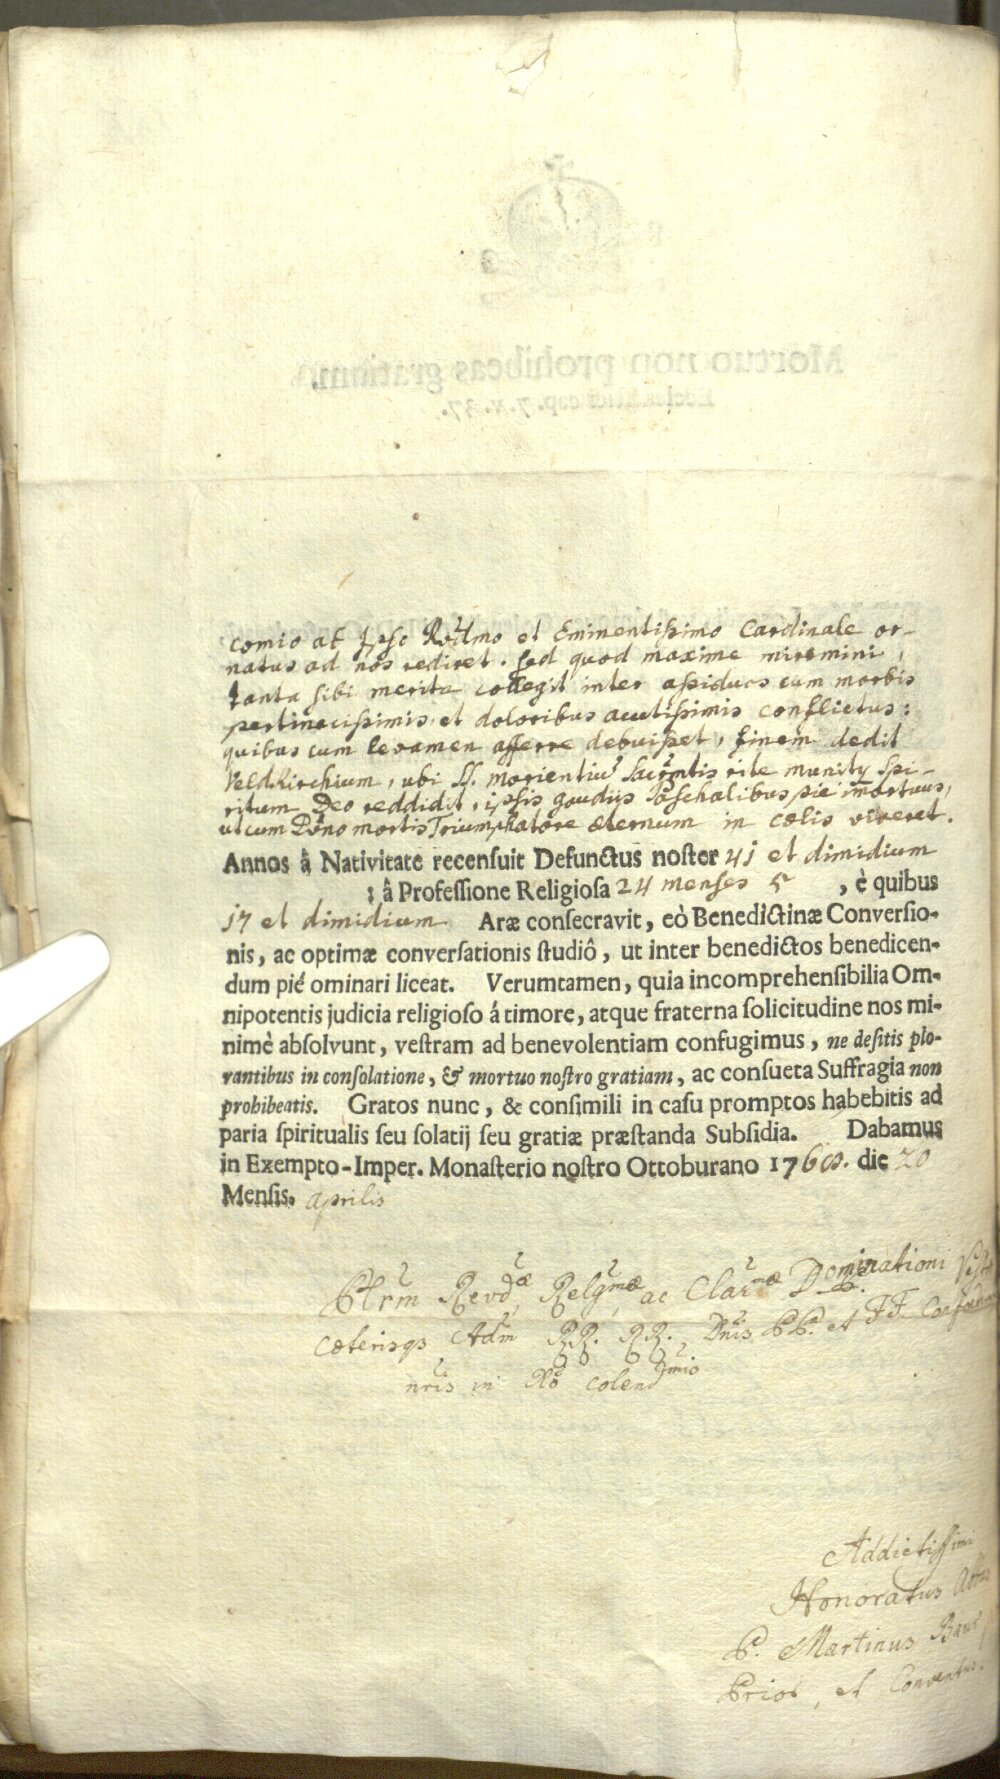 comio ab Ipso Rvdmo et Eminentißimo Cardinale or-
natus ad nos rediret. sed quod maxime miremini,
tanta sibi merita collegit inter aßiduos cum morbis
pertinacißimis et doloribus acutißimis conflictus:
quibus cum levamen afferre debuißet, finem dedit
Veldkirchium, ubi SS. morientiū Sacrmtis rite munitq Spi-
ritum Deo reddidit, ipsis gaudiis Paschalibus pie immortuus,
ut cum Dōno mortis Triumphatore æternum in cœlis viveret.
Annos â Nativitate recensuit Defunctus noster 41 et dimidium
; â Professione Religiosa 24 menses 5 , è quibus
17 et dimidium Aræ consecravit, eò Benedictinæ Conversio-
nis, ac optimæ conversationis studiô, ut inter benedictos benedicen-
dum pié ominari liceat. Verumtamen, quia incomprehensibilia Om-
nipotentis judicia religioso á timore, atque fraterna solicitudine nos mi-
nimè absolvunt, vestram ad benevolentiam confugimus, ne desitis plo-
rantibus in consolatione, & mortuo nostro gratiam, ac consueta Suffragia non
prohibeatis. Gratos nunc, & consimili in casu promptos habebitis ad
paria spiritualis seu solatij seu gratiæ præstanda Subsidia. Dabamus
in Exempto-Imper. Monasterio nostro Ottoburano 1768. die 20
Mensis. Aprilis
Plrm Revdæ, Relgmæ ac Clarmæ Dominationi
cæterisqs Adm RR. RR. Dnis PP. et FF.
nris in Xo colendmis
Addictissimi
Honoratus Abbas
P. Martinus
Prior, et Conventus.